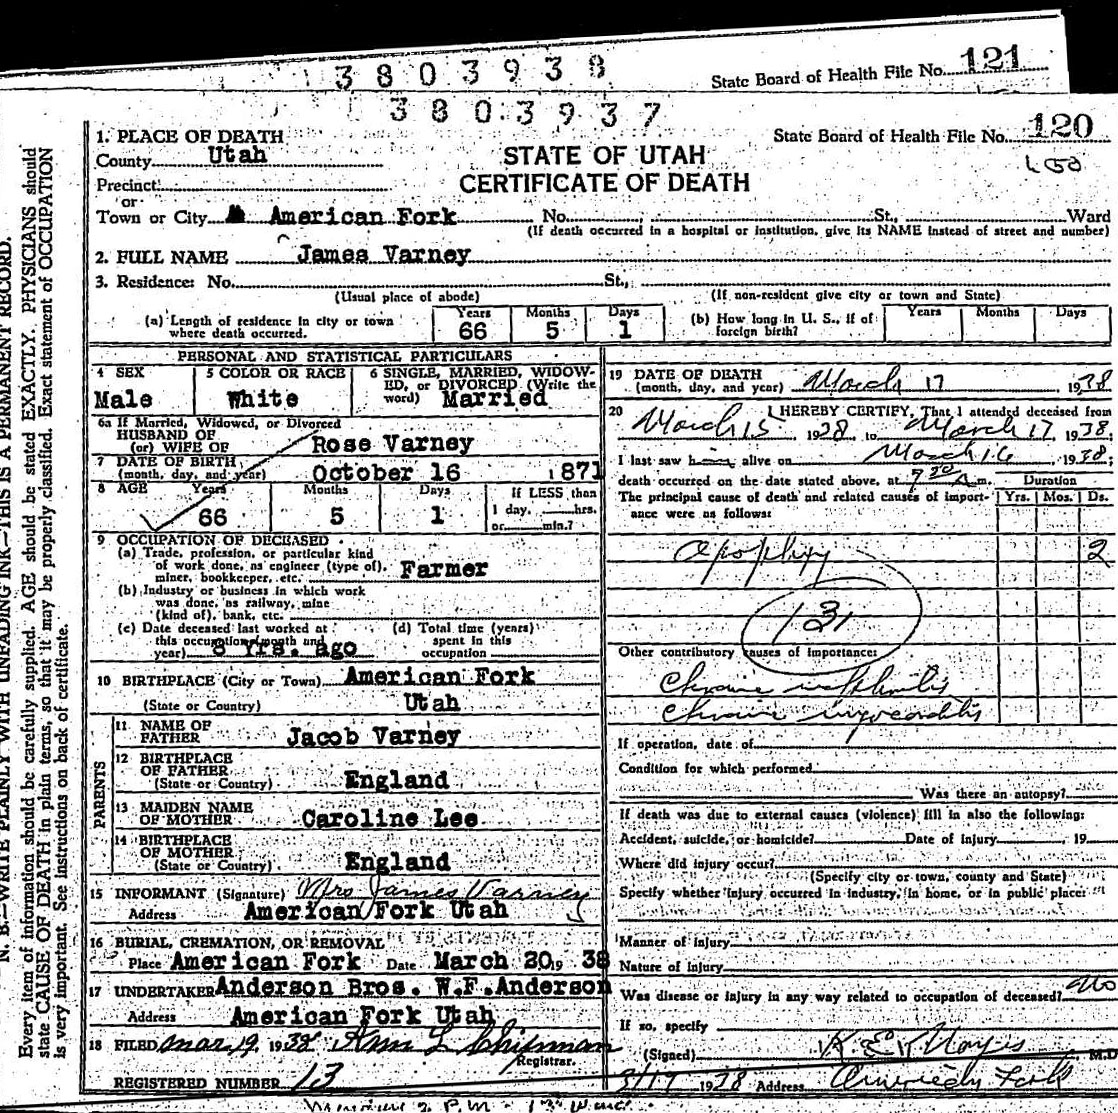 3803938
State Board of Health File No. 121
3803937
State Board of Health File No. 120
1. PLACE OF DEATH
County Utah
STATE OF UTAH
CERTIFICATE OF DEATH
Precinct
or
Town or City American Fork No. St., Ward
(If death occurred in a hospital or institution, give its NAME instead of street and number)
2. FULL NAME James Varney
3. Residence: No. St.,
(Usual place of abode) (If non-resident give city or town and State)
(a) Length of residence in city or town where death occurred. Years 66 Months 5 Days 1 (b) How long in U. S., if of foreign birth? Years Months Days
PERSONAL AND STATISTICAL PARTICULARS
4 SEX Male
5 COLOR OR RACE White
6 SINGLE, MARRIED, WIDOWED, or DIVORCED (Write the word) Married
6a If Married, Widowed, or Divorced
HUSBAND OF
(or) WIFE OF Rose Varney
7 DATE OF BIRTH
(month, day, and year) October 16 1871
8 AGE Years 66 Months 5 Days 1 If LESS than
1 day, hrs.
or min.?
9 OCCUPATION OF DECEASED
(a) Trade, profession, or particular kind
of work done, as engineer (type of),
miner, bookkeeper, etc. Farmer
(b) Industry or business in which work
was done, as railway, mine
(kind of), bank, etc.
(c) Date deceased last worked at
this occupation (month and
year) 8 Yrs. ago
(d) Total time (years)
spent in this
occupation
10 BIRTHPLACE (City or Town) American Fork
(State or Country) Utah
PARENTS
11 NAME OF
FATHER Jacob Varney
12 BIRTHPLACE
OF FATHER
(State or Country) England
13 MAIDEN NAME
OF MOTHER Caroline Lee
14 BIRTHPLACE
OF MOTHER
(State or Country) England
15 INFORMANT (Signature) Mrs James Varney
Address American Fork Utah
16 BURIAL, CREMATION, OR REMOVAL
Place American Fork Date March 20, 19 38
17 UNDERTAKER Anderson Bros. W.F. Anderson
Address American Fork Utah
18 FILED Mar. 19. 1938 Wm L Chipman
Registrar.
REGISTERED NUMBER 13
19 DATE OF DEATH
(month, day, and year) March 17 1938
20 I HEREBY CERTIFY, That I attended deceased from
March 15 1938, to March 17, 1938.
I last saw him alive on March 16, 1938;
death occurred on the date stated above, at 7 30 A m.
The principal cause of death and related causes of importance were as follows:
Duration
Yrs. Mos. Ds.
Apoplexy 2
131
Other contributory causes of importance:
Chronic nephritis
Chronic myocarditis
If operation, date of
Condition for which performed
Was there an autopsy?
If death was due to external causes (violence) fill in also the following:
Accident, suicide, or homicide? Date of injury 19
Where did injury occur?
(Specify city or town, county and State)
Specify whether injury occurred in industry, in home, or in public place:
Manner of injury
Nature of injury
Was disease or injury in any way related to occupation of deceased? no
If so, specify
(Signed) K. E. Noyes M.D
3/17 1938 Address American Fork
N. B.—WRITE PLAINLY WITH UNFADING INK—THIS IS A PERMANENT RECORD.
Every item of information should be carefully supplied. AGE should be stated EXACTLY. PHYSICIANS should
state CAUSE OF DEATH in plain terms, so that it may be properly classified. Exact statement of OCCUPATION
is very important. See instructions on back of certificate.